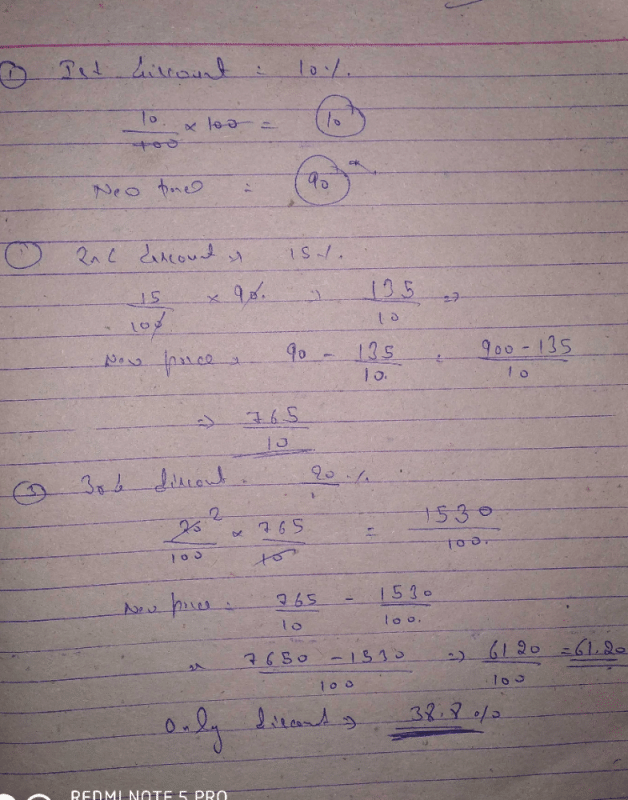 ① Ist discount = 10%.
10/100 × 100 = 10
New price = 90
2nd discount ⇒ 15%.
15/100 × 90. ⇒ 135/10 ⇒
New price ⇒ 90 - 135/10. = 900 - 135/10
⇒ 765/10
③ 3rd discount. 20%.
20 2/100 × 765/10 = 1530/100.
New price = 765/10 - 1530/100.
⇒ 7650 - 1530/100 ⇒ 6120/100 = 61.20
Only discount ⇒ 38.8%
REDMI NOTE 5 PRO